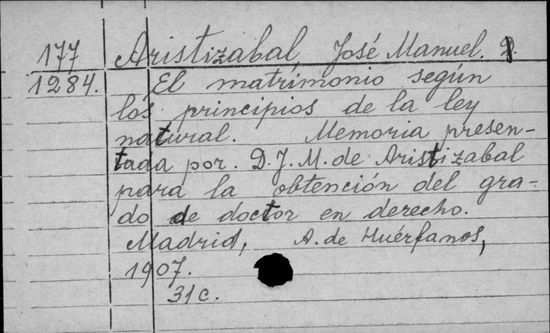 177 Aristizabal, José Manuel.
1284. El matrimonio según
los principios de la ley
natural. Memoria presen-
tada por. D. J. M. de Aristizabal
para la obtención del gra-
do de doctor en derecho.
Madrid, A. de Huérfanos,
1907.
31c.